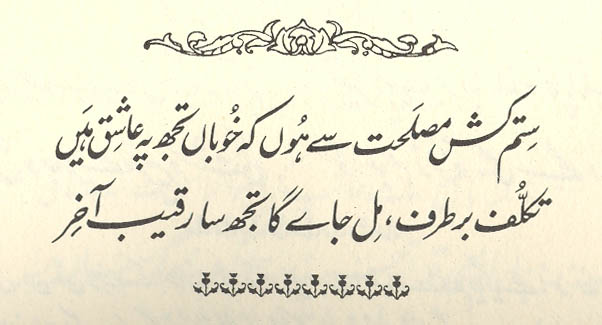 سِتم کش مصلَحت سے ہُوں کہ خُوباں تجھ پہ عاشِق ہَیں
تکلُّف بر طرف، مِل جاے گا تجھ سا رقیب آخِر